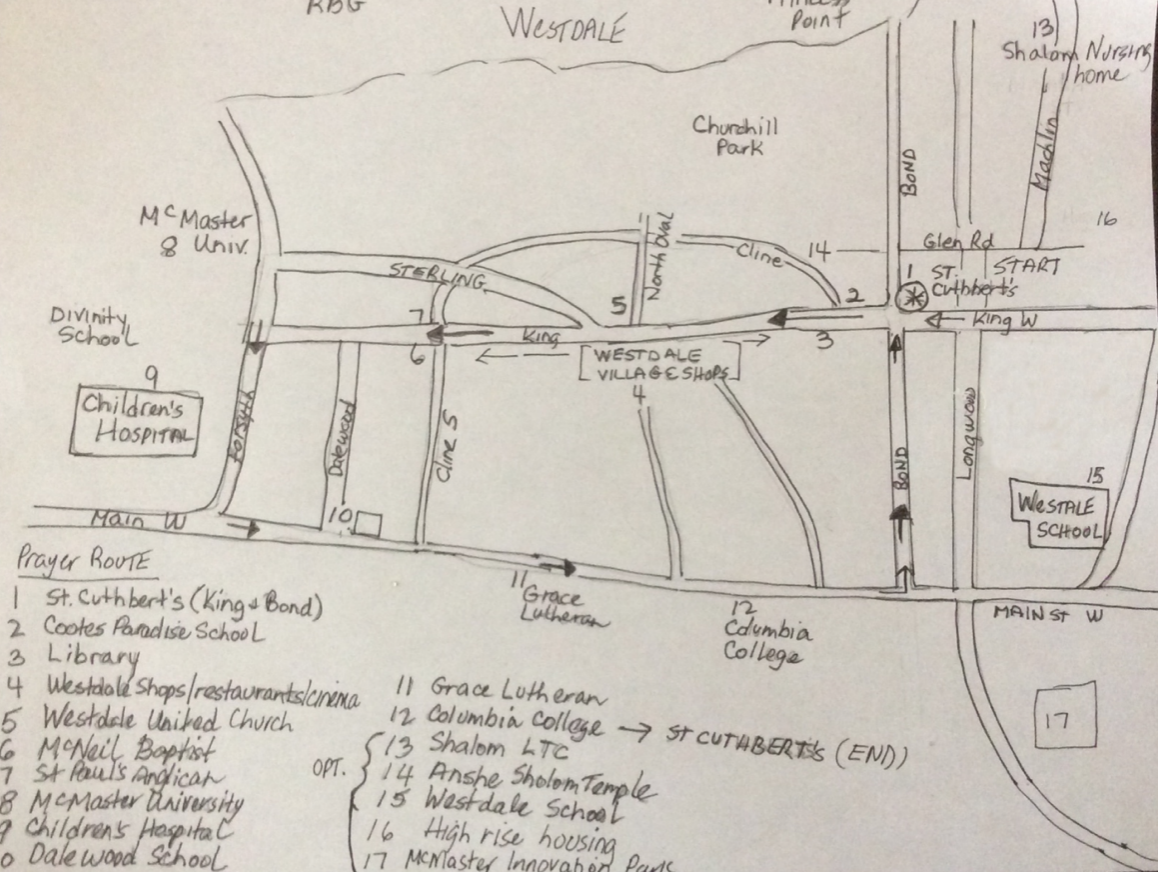 RBG
WESTDALE
Point
13
Shalom Nursing
home
Churchill
Park
BOND
Machlin
16
McMaster
8 Univ.
North Oval
Cline
14
Glen Rd
STERLING
1 ST.
Cuthbert's
START
5
2
7
King
3
King W
Divinity
School
6
WESTDALE
VILLAGE SHOPS
4
9
Children's
HOSPITAL
Forsyth
Dalewood
Cline S
BOND
Longwood
15
WESTALE
SCHOOL
Main W
10
11
Grace
Lutheran
12
Columbia
College
MAIN ST W
17
Prayer ROUTE
1 St. Cuthbert's (King & Bond)
2 Cootes Paradise School
3 Library
4 Westdale Shops/restaurants/cinema
5 Westdale United Church
6 McNeil Baptist
7 St Paul's Anglican
8 McMaster University
9 Children's Hospital
0 Dalewood School
11 Grace Lutheran
12 Columbia College → ST CUTHBERT'S (END)
OPT.
13 Shalom LTC
14 Anshe Sholom Temple
15 Westdale School
16 High rise housing
17 McMaster Innovation Park